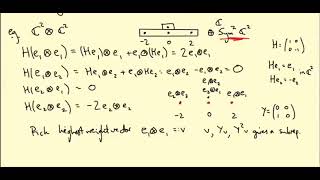 e.g. ℂ² ⊗ ℂ²
-2 0 2
ℂ ⊕ Sym² ℂ²
H(e₁⊗e₁) = (He₁)⊗e₁ + e₁⊗(He₁) = 2e₁⊗e₁
H(e₁⊗e₂) = He₁⊗e₂ + e₁⊗He₂ = e₁⊗e₂ - e₁⊗e₂ = 0
H(e₂⊗e₁) = 0
H(e₂⊗e₂) = -2e₂⊗e₂
H = (1 0
0 -1)
He₁ = e₁
He₂ = -e₂
in ℂ²
e₁⊗e₂
e₂⊗e₂ e₂⊗e₁ e₁⊗e₁
-2 0 2
Y = (0 0
1 0)
Pick highest weight vector e₁⊗e₁ =: v v, Yv, Y²v gives a subrep.